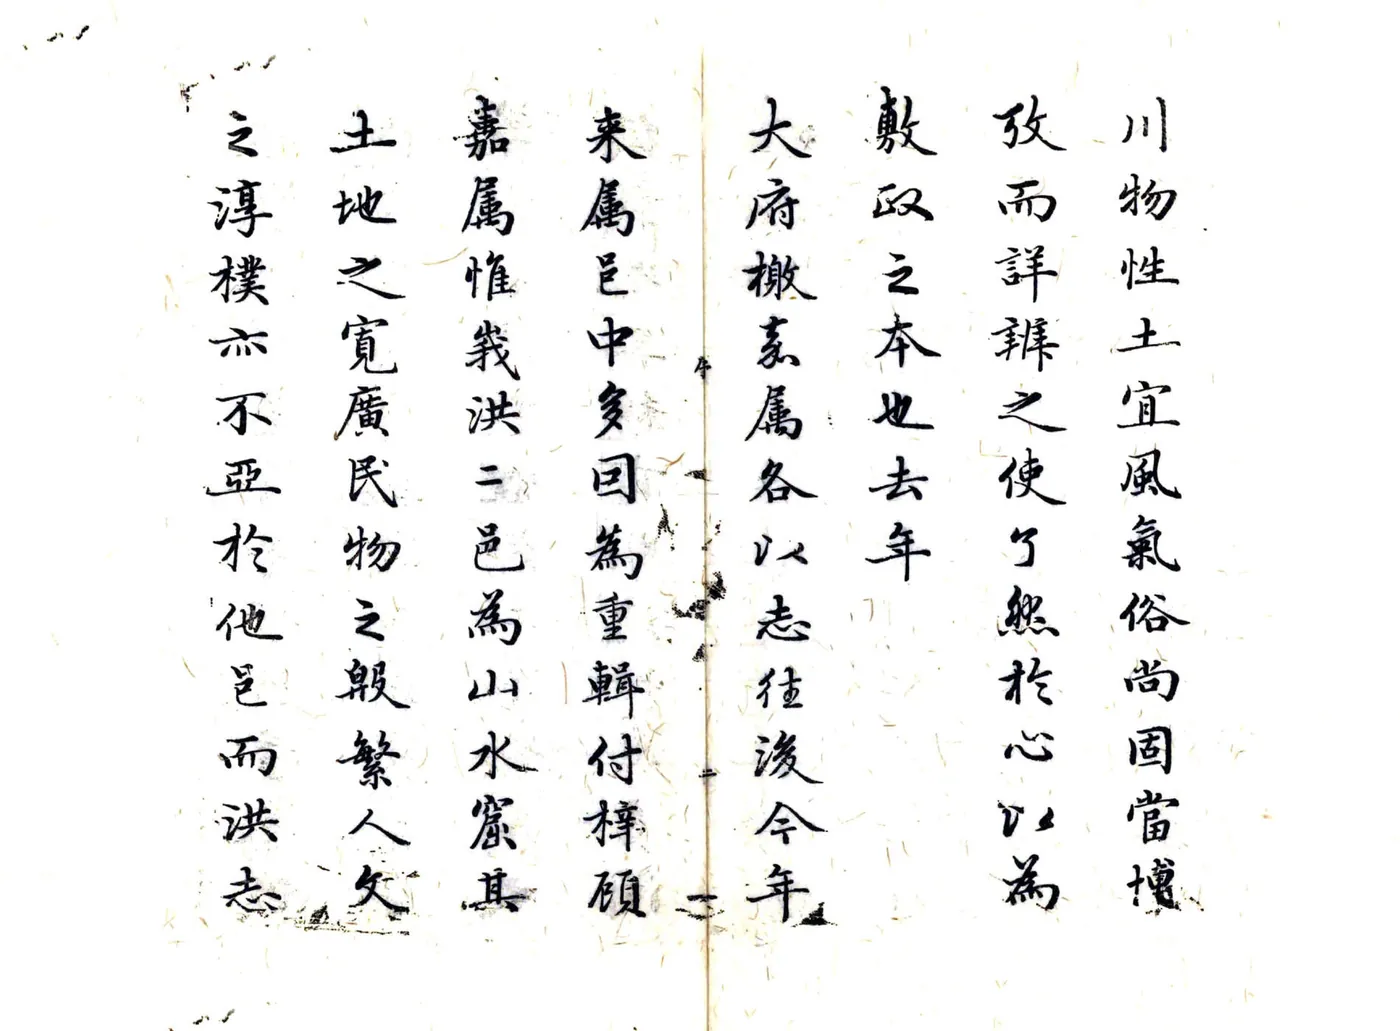 川物性土宜風氣俗尚固當博
攷而詳辨之使了然於心以為
敷政之本也去年
大府檄嘉属各以志徃後今年
来属邑中多囙為重輯付梓顧
嘉属惟峩洪二邑為山水窟其
土地之寬廣民物之殷繁人文
之淳樸亦不亞於他邑而洪志
序
二
一